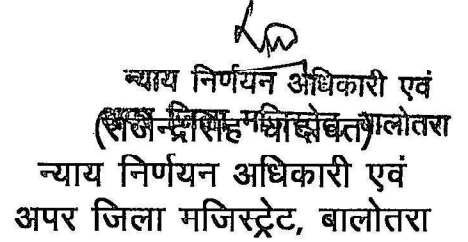 न्याय निर्णयन अधिकारी एवं
अपर जिला मजिस्ट्रेट, बालोतरा
न्याय निर्णयन अधिकारी एवं
अपर जिला मजिस्ट्रेट, बालोतरा